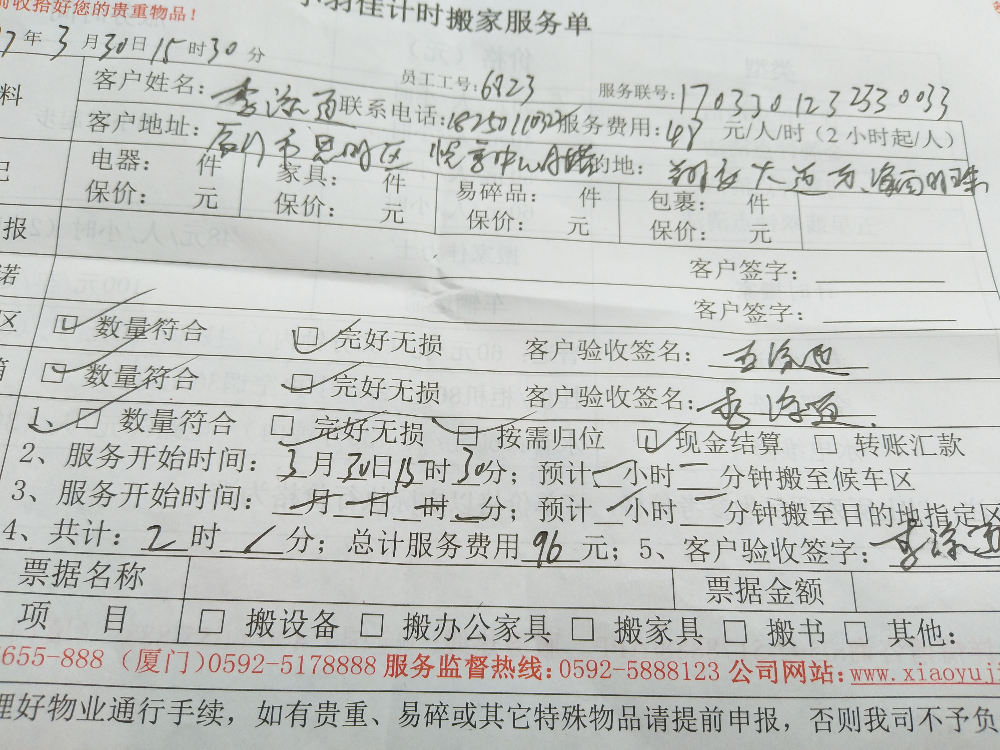 前收拾好您的贵重物品!
小羽佳计时搬家服务单
7年3月30日15时30分
员工工号:6823 服务联号:1703301232330033
料 客户姓名: 联系电话:18250110324 服务费用:48元/人/时(2小时起/人)
客户地址:厦门市思明区 目的地:
记 电器: 件 家具: 件 易碎品: 件 包裹: 件
保价: 元 保价: 元 保价: 元 保价: 元
报 客户签字:
诺 客户签字:
区 数量符合 完好无损 客户验收签名:
箱 数量符合 完好无损 客户验收签名:
1、 数量符合 完好无损 按需归位 现金结算 转账汇款
2、服务开始时间:3月30日15时30分;预计 小时 分钟搬至候车区
3、服务开始时间: 月 日 时 分;预计 小时 分钟搬至目的地指定区
4、共计:2时 分;总计服务费用96元;5、客户验收签字:
票据名称 票据金额
项 目 搬设备 搬办公家具 搬家具 搬书 其他:
655-888(厦门)0592-5178888 服务监督热线:0592-5888123 公司网站:www.xiaoyuji
理好物业通行手续,如有贵重、易碎或其它特殊物品请提前申报,否则我司不予负